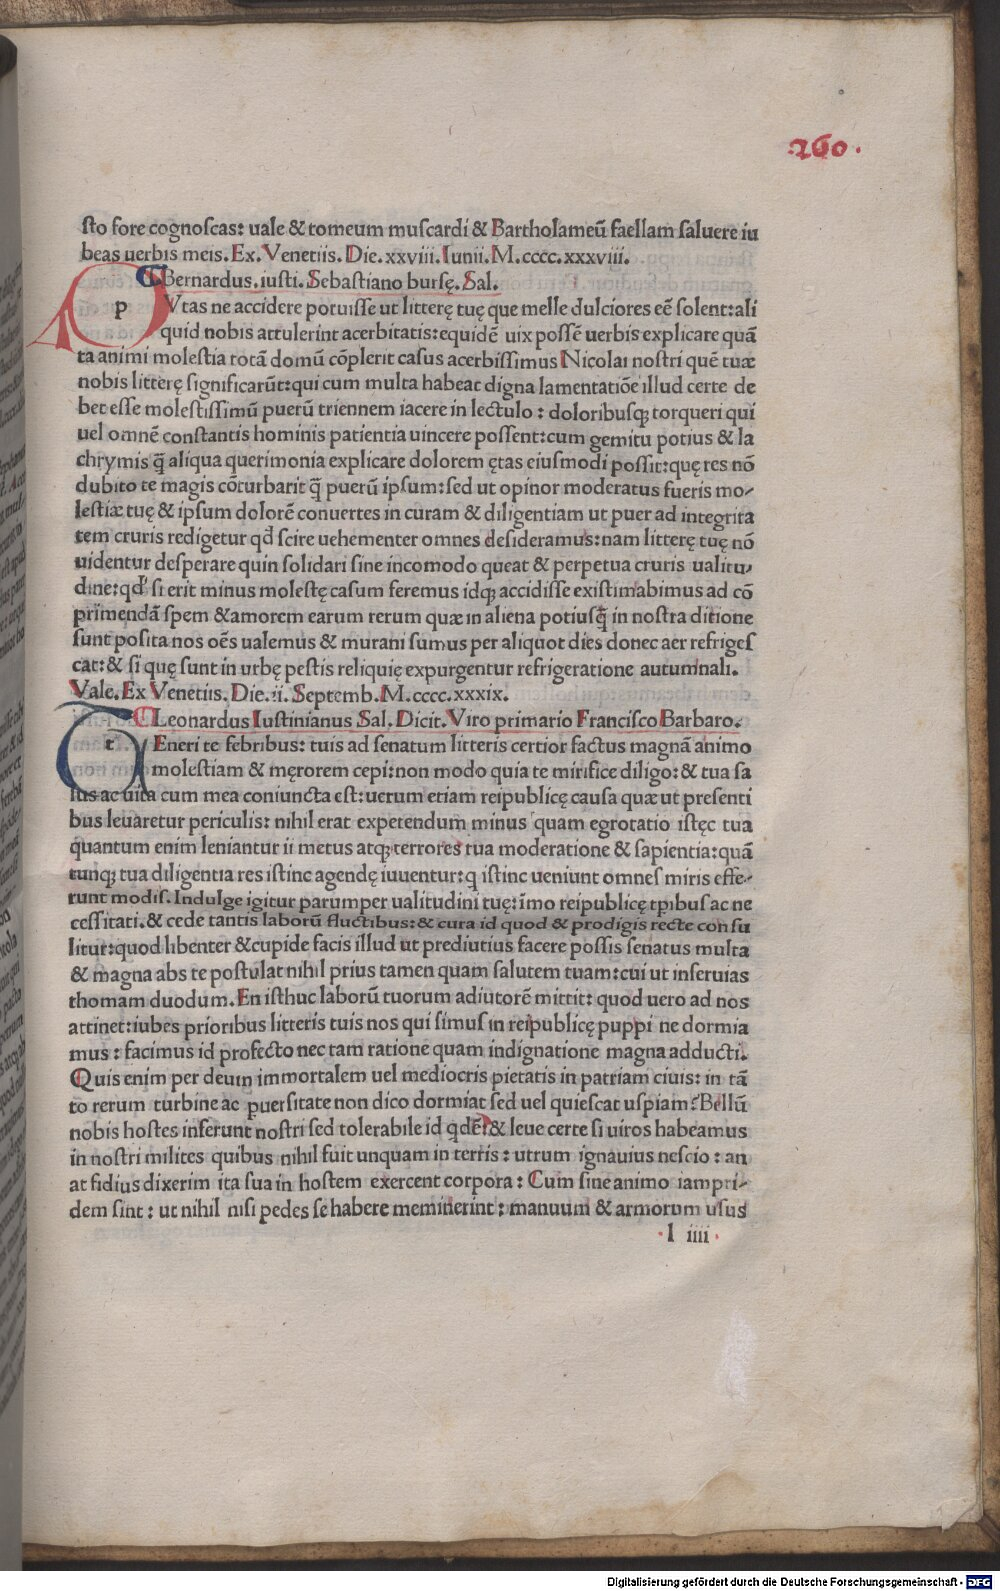 .260.
sto fore cognoscas: uale & tomeum muscardi & Bartholameū faellam saluere iu
beas uerbis meis. Ex. Venetiis. Die. xxviii. Iunii. M. cccc. xxxviii.
Bernardus. iusti. Sebastiano bursę. Sal.
p Vtas ne accidere potuisse ut litterę tuę que melle dulciores eē solent: ali
quid nobis attulerint acerbitatis: equidē uix possē uerbis explicare quā
ta animi molestia totā domū cōplerit casus acerbissimus Nicolai nostri quē tuæ
nobis litterę significarūt: qui cum multa habeat digna lamentatiōe illud certe de
bet esse molestissimū puerū triennem iacere in lectulo : doloribusqꝫ torqueri qui
uel omnē constantis hominis patientia uincere possent: cum gemitu potius & la
chrymis q̄ aliqua querimonia explicare dolorem ętas eiusmodi possit: quę res nō
dubito te magis cōturbarit q̄ puerū ipsum: sed ut opinor moderatus fueris mo-
lestiæ tuę & ipsum dolorē conuertes in curam & diligentiam ut puer ad integrita
tem cruris redigetur qd̓ scire uehementer omnes desideramus: nam litterę tuę nō
uidentur desperare quin solidari sine incomodo queat & perpetua cruris ualitu-
dine: qd̓ si erit minus molestę casum feremus idqꝫ accidisse existimabimus ad cō
primendā spem & amorem earum rerum quæ in aliena potiusq̄ in nostra ditione
sunt posita nos oēs ualemus & murani sumus per aliquot dies donec aer refriges
cat: & si quę sunt in urbę pestis reliquię expurgentur refrigeratione autumnali.
Vale. Ex Venetiis. Die. ii. Septemb. M. cccc. xxxix.
Leonardus Iustinianus Sal. Dicit. Viro primario Francisco Barbaro.
t Eneri te febribus: tuis ad senatum litteris certior factus magnā animo
molestiam & męrorem cepi: non modo quia te mirifice diligo: & tua sa
lus ac uita cum mea coniuncta est: uerum etiam reipublicę causa quæ ut presenti
bus leuaretur periculis: nihil erat expetendum minus quam egrotatio istęc tua
quantum enim leniantur ii metus atqꝫ terrores tua moderatione & sapientia: quā
tunqꝫ tua diligentia res istinc agendę iuuentur: q istinc ueniunt omnes miris effe-
runt modis. Indulge igitur parumper ualitudini tuę: īmo reipublicę tp̄ibus ac ne
cessitati. & cede tantis laborū fluctibus: & cura id quod & prodigis recte consu
litur: quod libenter & cupide facis illud ut prediutius facere possis senatus multa
& magna abs te postulat nihil prius tamen quam salutem tuam: cui ut inseruias
thomam duodum. En isthuc laborū tuorum adiutorē mittit: quod uero ad nos
attinet: iubes prioribus litteris tuis nos qui simus in reipublicę puppi ne dormia
mus : facimus id profecto nec tam ratione quam indignatione magna adducti.
Quis enim per deum immortalem uel mediocris pietatis in patriam ciuis: in tā
to rerum turbine ac puersitate non dico dormiat sed uel quiescat uspiam? Bellū
nobis hostes inferunt nostri sed tolerabile id qdē: & leue certe si uiros habeamus
in nostri milites quibus nihil fuit unquam in terris : utrum ignauius nescio : an
at fidius dixerim ita sua in hostem exercent corpora : Cum sine animo iampri-
dem sint : ut nihil nisi pedes se habere meminerint : manuum & armorum usus
.l iiii.
Digitalisierung gefördert durch die Deutsche Forschungsgemeinschaft - DFG